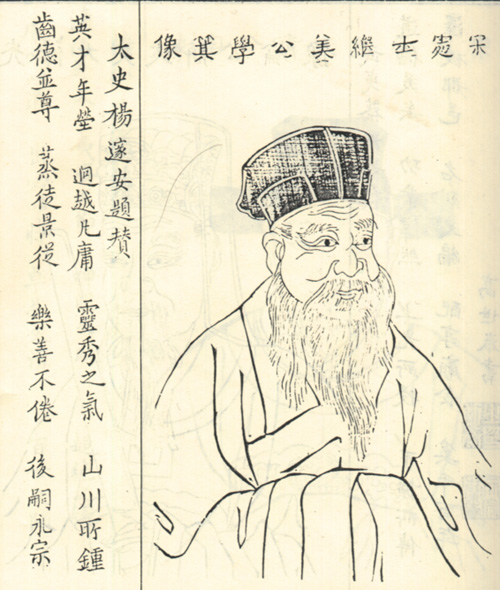 宋士繼美公學萁像
太史楊邃安題賛
英才年瑩 迥越凡庸 靈秀之氣 山川所鍾
齒德並尊 蒸徒景從 樂善不倦 後嗣永宗